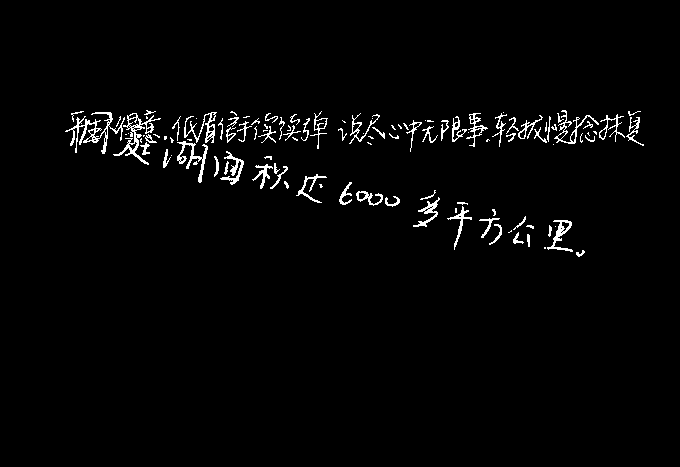 不得意.低眉信手续续弹 说尽心中无限事.轻拢慢捻抹复
湖面积达6000多平方公里。